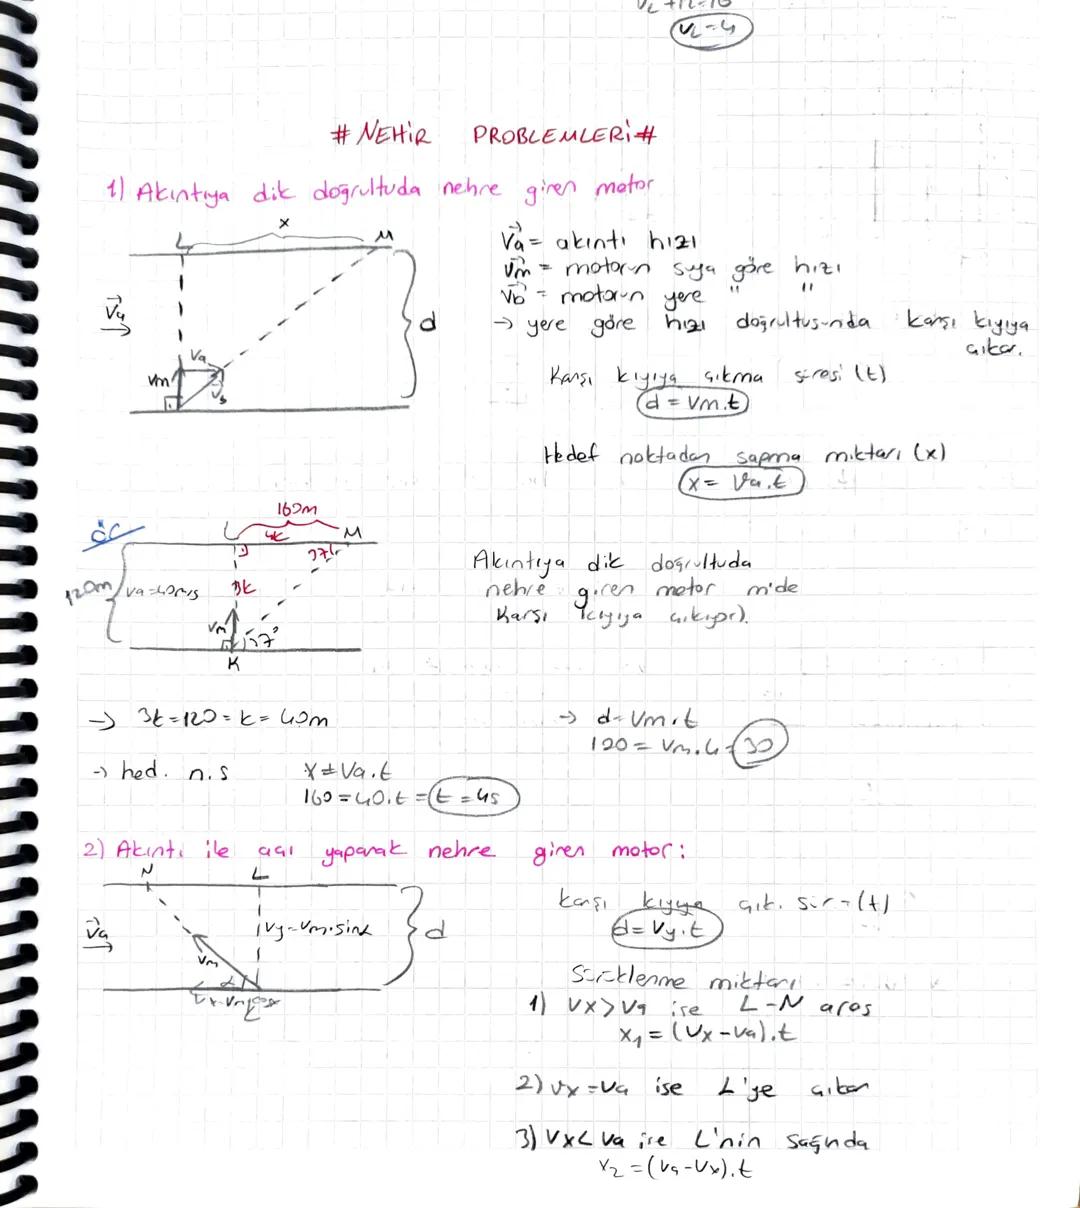 VL = 4
# NEHİR PROBLEMLERİ #
1) Akıntıya dik doğrultuda nehre giren motor
x
L M
Va = akıntı hızı
Vm = motorun suya göre hızı
Vb = motorun yere " "
→ yere göre hızı doğrultusunda karşı kıyıya
çıkar.
Va
d
Va
Vm
Karşı kıyıya çıkma süresi (t)
d = Vm.t
Hedef noktadan sapma miktarı (x)
x = Va.t
160m
L 4k M
37
120m
Va = 40m/s
3k
Vm
K
Akıntıya dik doğrultuda
nehre giren motor m'de
karşı kıyıya çıkıyor.
→ 3k = 120 = k = 40m
→ d = Vm.t
120 = Vm.4 = 30
→ hed. n.s x = Va.t
160 = 40.t = t = 4s
2) Akıntı ile açı yaparak nehre giren motor:
N L
Va
Vy = Vm.sinα
d
Vm
α
karşı kıyıya çık. sür = (t)
d = Vy.t
Sürüklenme miktarı
1) Vx > Va ise L-N arası
x1 = (Vx - Va).t
2) Vx = Va ise L'ye çıkar
3) Vx < Va ise L'nin sağında
x2 = (Va - Vx).t